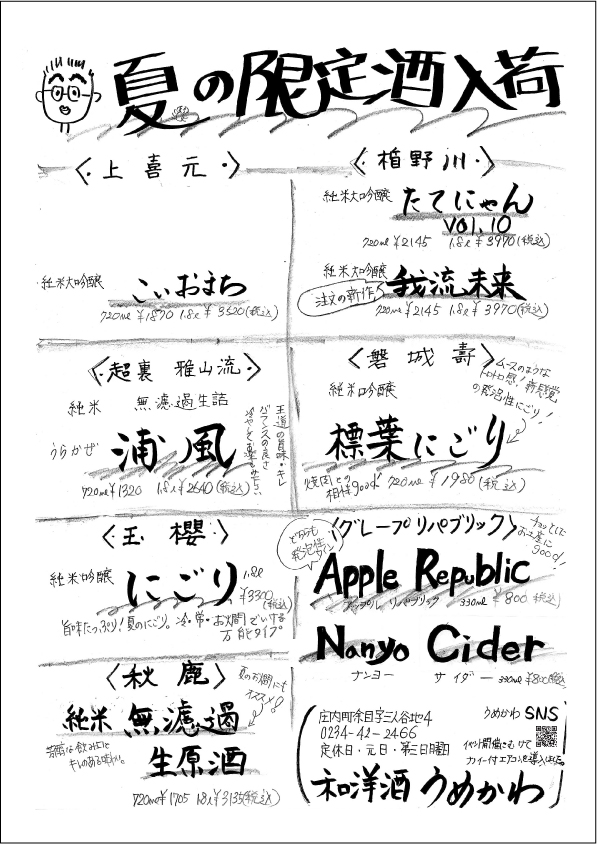 夏の限定酒入荷
〈・上喜元・〉
純米大吟醸
こいおまち
720ml ¥1870 1.8l ¥3520(税込)
〈・楯野川・〉
純米大吟醸
たてにゃん
vol.10
720ml ¥2145 1.8l ¥3970(税込)
純米大吟醸
注文の新作
我流未来
720ml ¥2145 1.8l ¥3970(税込)
〈・超裏 雅山流・〉
純米 無濾過生詰
うらかぜ
浦風
720ml ¥1320 1.8l ¥2640(税込)
王道の旨味・キレ
バランスの良さ
〈・磐城壽・〉
純米吟醸
標葉にごり
ムースのような
トロトロ感!新感覚
の発泡性にごり!
焼肉との
相性good!
720ml ¥1980(税込)
〈・玉櫻・〉
純米吟醸
にごり
1.8l
¥3300
(税込)
旨味たっぷり!夏のにごり。冷・常・お燗でいける
万能タイプ
どちらも
発泡性
ワイン
〈グレープリパブリック〉
チョッとした
お土産に
good!
Apple Republic
アップル リパブリック 330ml ¥800(税込)
Nanyo Cider
ナンヨー サイダー 330ml ¥800(税込)
〈・秋鹿・〉
夏のお燗にも
オススメ!
純米 無濾過
生原酒
キレのある味わい。
720ml ¥1705 1.8l ¥3135(税込)
庄内町余目字三人谷地4
0234-42-2466
定休日・元日・第三日曜日
うめかわ SNS
イベント開催にむけて
和洋酒うめかわ